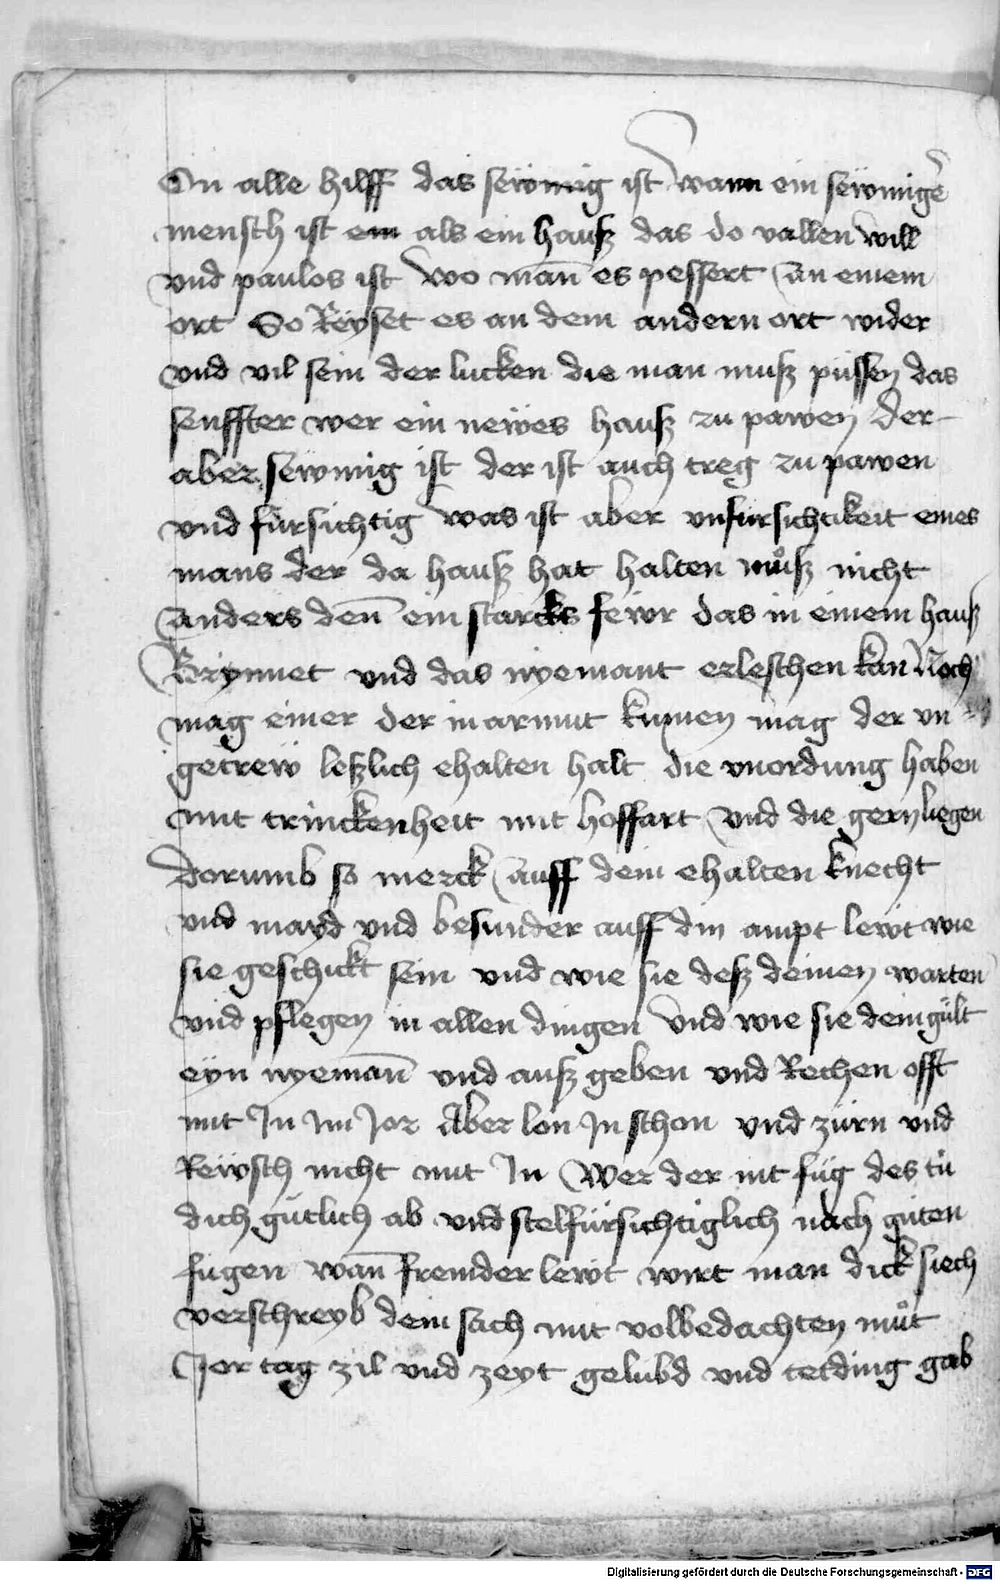 On alle hilff das seẅmig ist wann ein seẅmiger
mensch ist ein als ein hauß das do vallen will
vnd paulos ist wo man̄ es pessert an einem
ort So Reÿset es an dem andern ort wider
vnd vil sein der lucken die man muß püssen das
senffter wer ein neẅes hauß zu pawen der
aber seẅmig ist der ist auch treg zu pawen
vnd fürsichtig was ist aber vnfürsichtikeit eines
mans der da hauß hat halten můß nicht
anders den̄ ein starcks fewr das in einem hauß
Brÿnnet vnd das nyemant erleschen kan Noch
mag einer der in armut kumen mag der vn
getreẅ leßlich ehalten halt die vnordnung haben
mit trinckenheit mit hoffart vnd die gern liegen
dorumb so merck auff dein ehalten knecht
vnd mayd vnd besunder auff din ampt leẅt wie
sie geschickt sein vnd wie sie deß deinen warten
vnd pflegen in allen dingen vnd wie sie dein gült
eyn nyeman̄ vnd auß geben vnd Rechen offt
mit In im Jor Aber lon In schon vnd zürn vnd
Reẅsch nicht mit In Wer der nit füg des tü
dich gütlich ab vnd stel fürsichtiglich nach guten
fugen wan̄ fremder leẅt wirt man dick siech
verschreyb dein sach mit volbedachten můt
Jor tag zil vnd zeyt gelübd vnd tetding gab
Digitalisierung gefördert durch die Deutsche Forschungsgemeinschaft - DFG